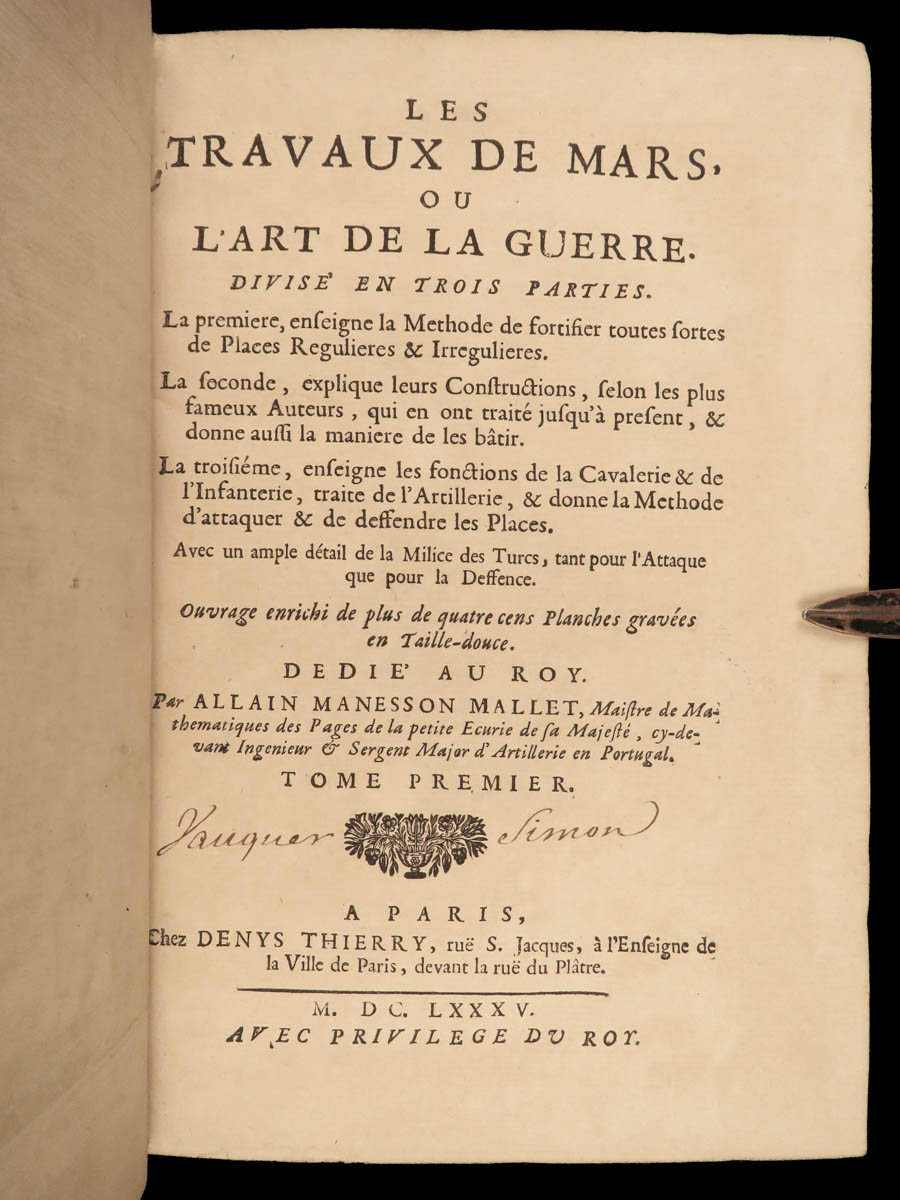 LES
TRAVAUX DE MARS,
OU
L'ART DE LA GUERRE.
DIVISE' EN TROIS PARTIES.
La premiere, enſeigne la Methode de fortifier toutes ſortes
de Places Regulieres & Irregulieres.
La ſeconde, explique leurs Conſtructions, ſelon les plus
fameux Auteurs, qui en ont traité juſqu'à preſent, &
donne auſſi la maniere de les bâtir.
La troiſiéme, enſeigne les fonctions de la Cavalerie & de
l'Infanterie, traite de l'Artillerie, & donne la Methode
d'attaquer & de deffendre les Places.
Avec un ample détail de la Milice des Turcs, tant pour l'Attaque
que pour la Deffence.
Ouvrage enrichi de plus de quatre cens Planches gravées
en Taille-douce.
DEDIE' AU ROY.
Par ALLAIN MANESSON MALLET, Maiſtre de Ma-
thematiques des Pages de la petite Ecurie de ſa Majeſté, cy-de-
vant Ingenieur & Sergent Major d'Artillerie en Portugal.
TOME PREMIER.
Vauquer Simon
A PARIS,
Chez DENYS THIERRY, ruë S. Jacques, à l'Enſeigne de
la Ville de Paris, devant la ruë du Plâtre.
M. DC. LXXXV.
AVEC PRIVILEGE DU ROY.